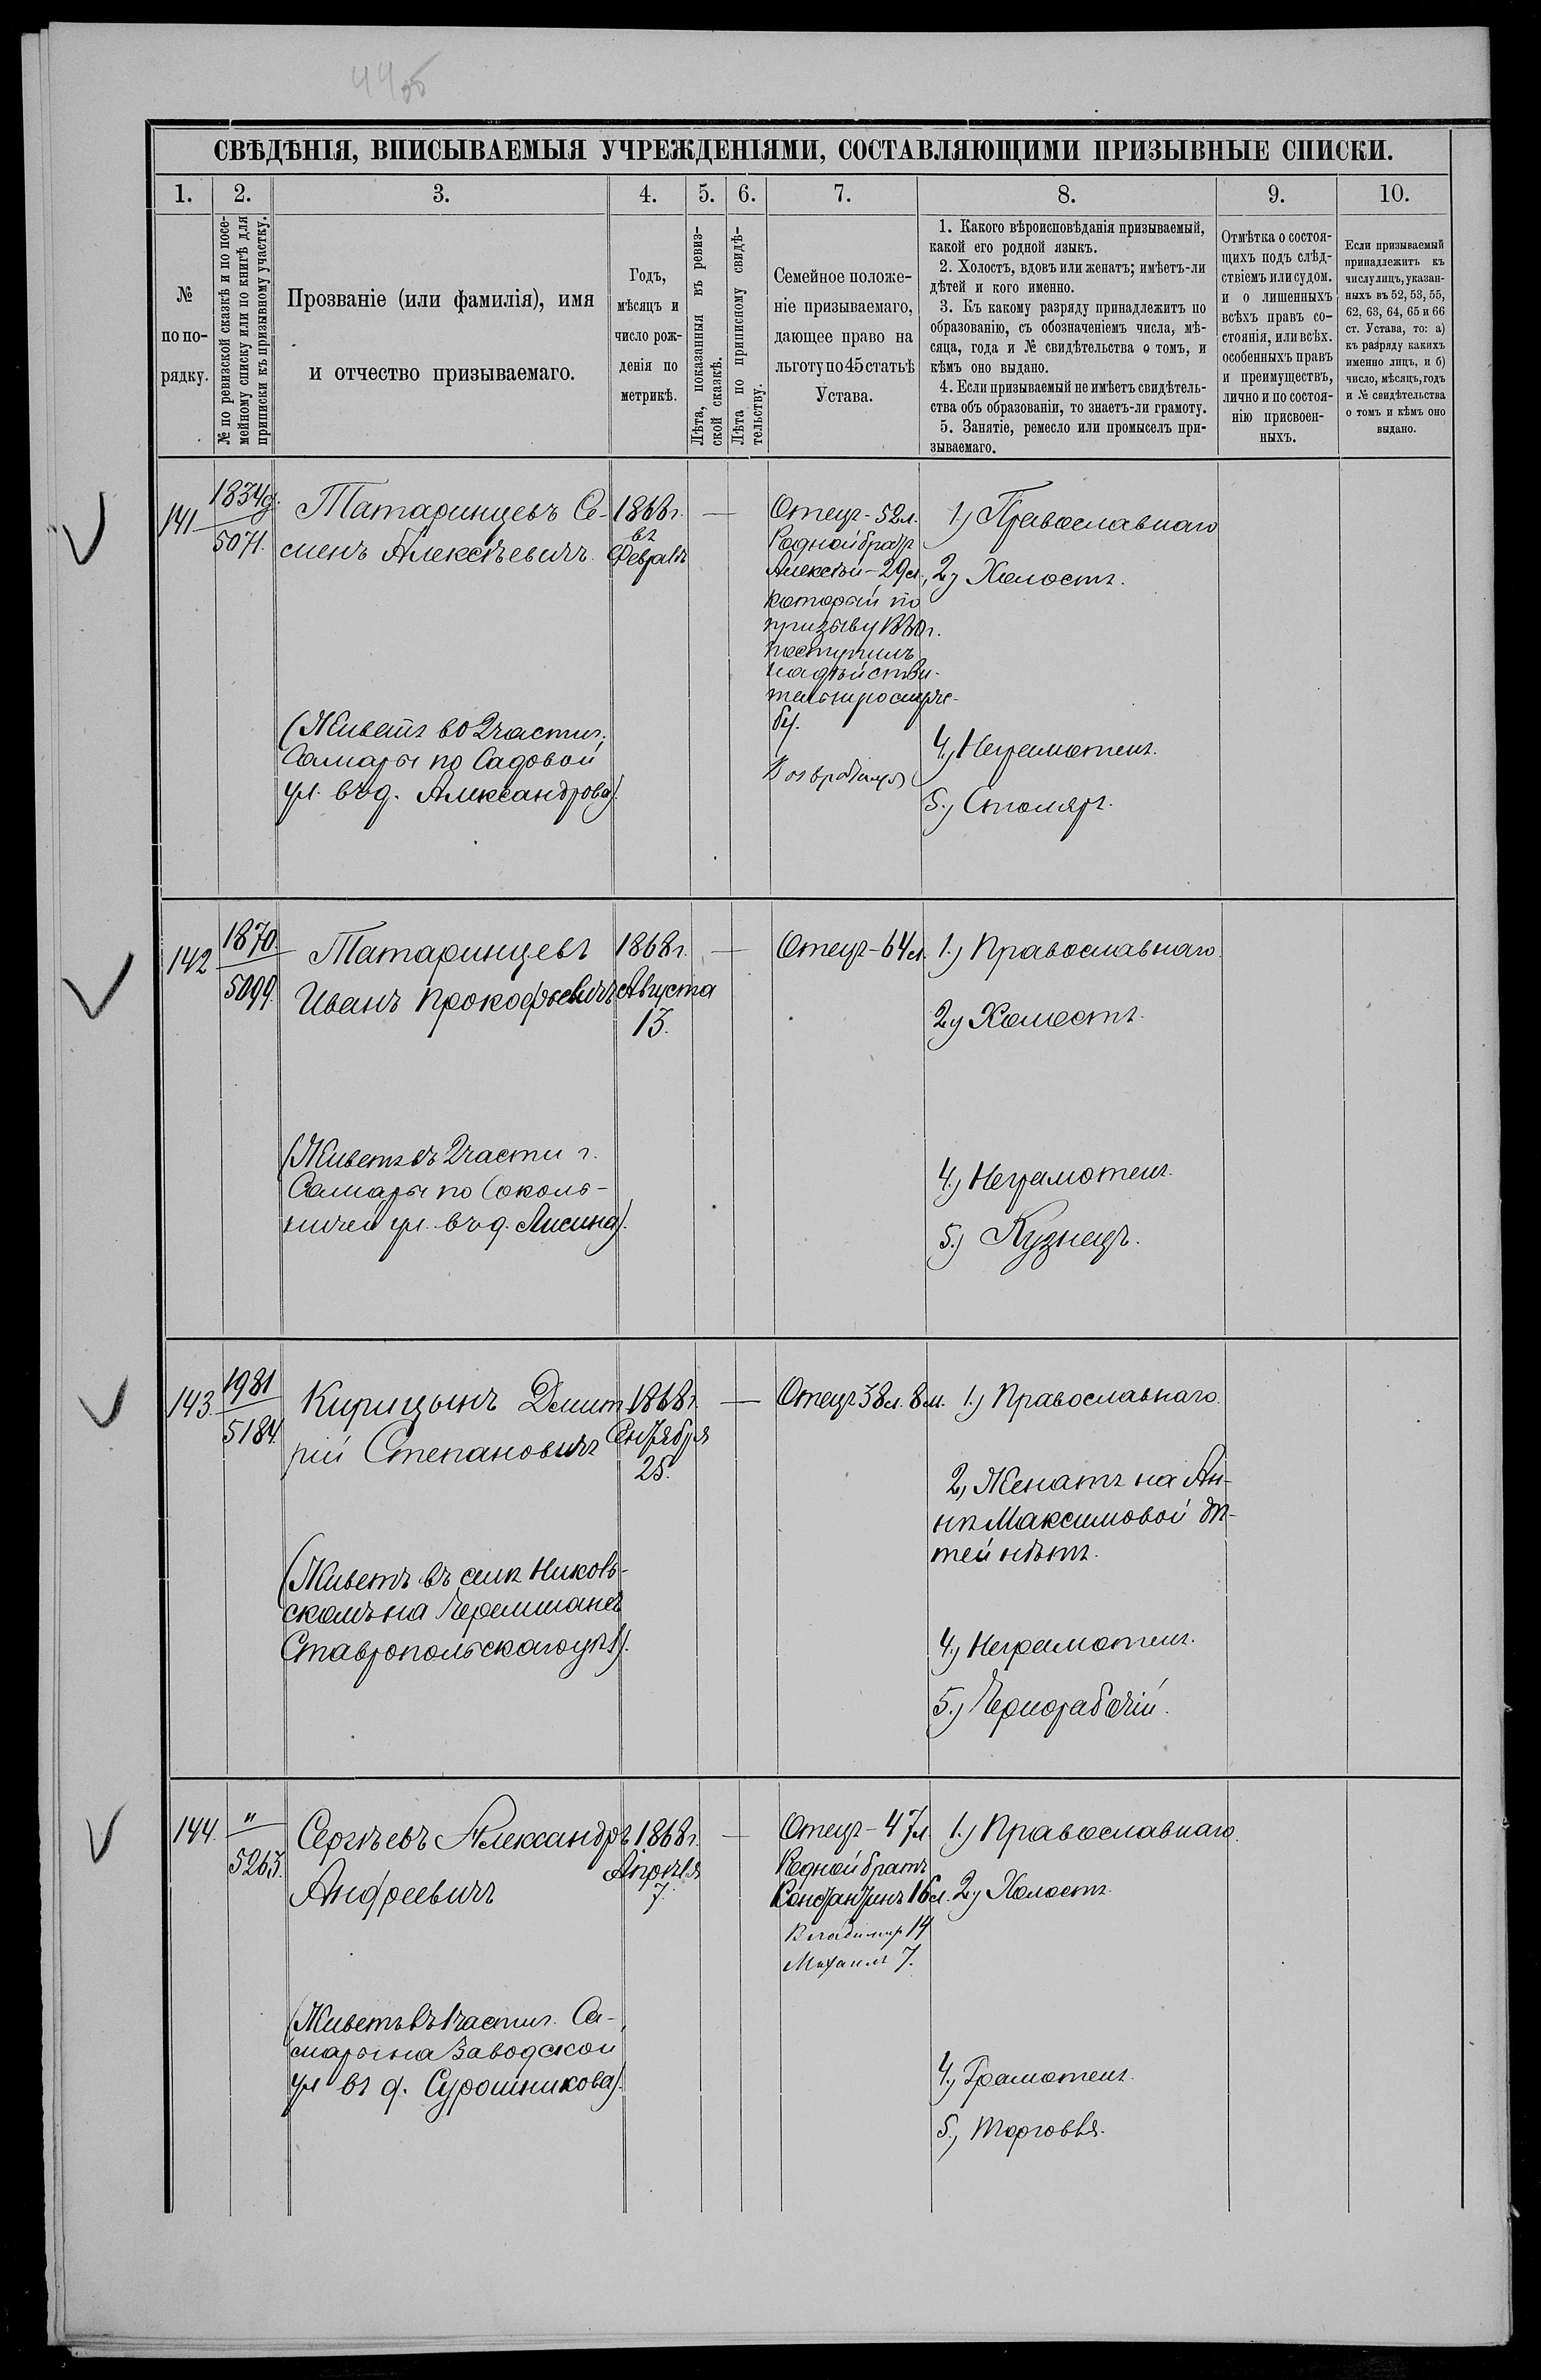 44об
СВѢДѢНІЯ, ВПИСЫВАЕМЫЯ УЧРЕЖДЕНІЯМИ, СОСТАВЛЯЮЩИМИ ПРИЗЫВНЫЕ СПИСКИ.
1. 2. 3. 4. 5. 6. 7. 8. 9. 10.
№
по по-
рядку.
№ по ревизской сказкѣ и по посе-
мейному списку или по книгѣ для
приписки къ призывному участку.
Прозваніе (или фамилія), имя
и отчество призываемаго.
Годъ,
мѣсяцъ и
число рож-
денія по
метрикѣ.
Лѣта, показанныя въ ревиз-
ской сказкѣ.
Лѣта по приписному свидѣ-
тельству.
Семейное положе-
ніе призываемаго,
дающее право на
льготу по 45 статьѣ
Устава.
1. Какого вѣроисповѣданія призываемый,
какой его родной языкъ.
2. Холостъ, вдовъ или женатъ; имѣетъ-ли
дѣтей и кого именно.
3. Къ какому разряду принадлежитъ по
образованію, съ обозначеніемъ числа, мѣ-
сяца, года и № свидѣтельства о томъ, и
кѣмъ оно выдано.
4. Если призываемый не имѣетъ свидѣтель-
ства объ образованіи, то знаетъ-ли грамоту.
5. Занятіе, ремесло или промыселъ при-
зываемаго.
Отмѣтка о состоя-
щихъ подъ слѣд-
ствіемъ или судом.
и о лишенныхъ
всѣхъ правъ со-
стоянія, или всѣх.
особенныхъ правъ
и преимуществъ,
лично и по состоя-
нію присвоен-
ныхъ.
Если призываемый
принадлежитъ къ
числу лицъ, указан-
ныхъ въ 52, 53, 55,
62, 63, 64, 65 и 66
ст. Устава, то: а)
къ разряду какихъ
именно лицъ, и б)
число, мѣсяцъ, годъ
и № свидѣтельства
о томъ и кѣмъ оно
выдано.
141
1834
5071.
Татаринцевъ Се-
менъ Алексѣевичъ.
(Живетъ во 2 части г.
Самары по Садовой
ул. въ д. Александрова).
1868 г.
въ
Февралѣ
—
Отецъ - 52 л.
Родной братъ
Алексѣй - 29 л.,
который по
призыву г.
поступилъ
на дѣйстви-
тельную служ-
бу.
Возвратился
1.) Православнаго
2.) Холостъ.
4.) Неграмотенъ.
5.) Столяръ.
142
1870
5099.
Татаринцевъ
Иванъ Прокофьевичъ
(Живетъ въ 2 части г.
Самары по Соколь-
ничей ул. въ д. Лисина).
1868 г.
Августа
13.
—
Отецъ - 64 л.
1.) Православнаго.
2.) Холостъ.
4.) Неграмотенъ.
5.) Кузнецъ.
143.
1981
5184.
Кирицынъ Дмит
рій Степановичъ
(Живетъ въ селѣ Николь-
скомъ на Черемшанѣ
Ставропольскаго уѣз).
1868 г.
Сентября
25.
—
Отецъ 38 л. 8 м.
1.) Православнаго.
2.) Женатъ на Ан-
нѣ Максимовой дѣ-
тей нѣтъ.
4.) Неграмотенъ.
5.) Чернорабочій.
144.
"
5263.
Сергѣевъ Александръ
Андреевичъ
(Живетъ въ 1 части г. Са-
мары на Заводской
ул въ д. Сурошникова).
1868 г.
Апрѣля
7.
—
Отецъ - 47 л
Родной братъ
Константинъ 16 л.
Владимир 14
Михаилъ 7.
1.) Православнаго.
2.) Холостъ.
4.) Грамотенъ.
5.) Торговля.